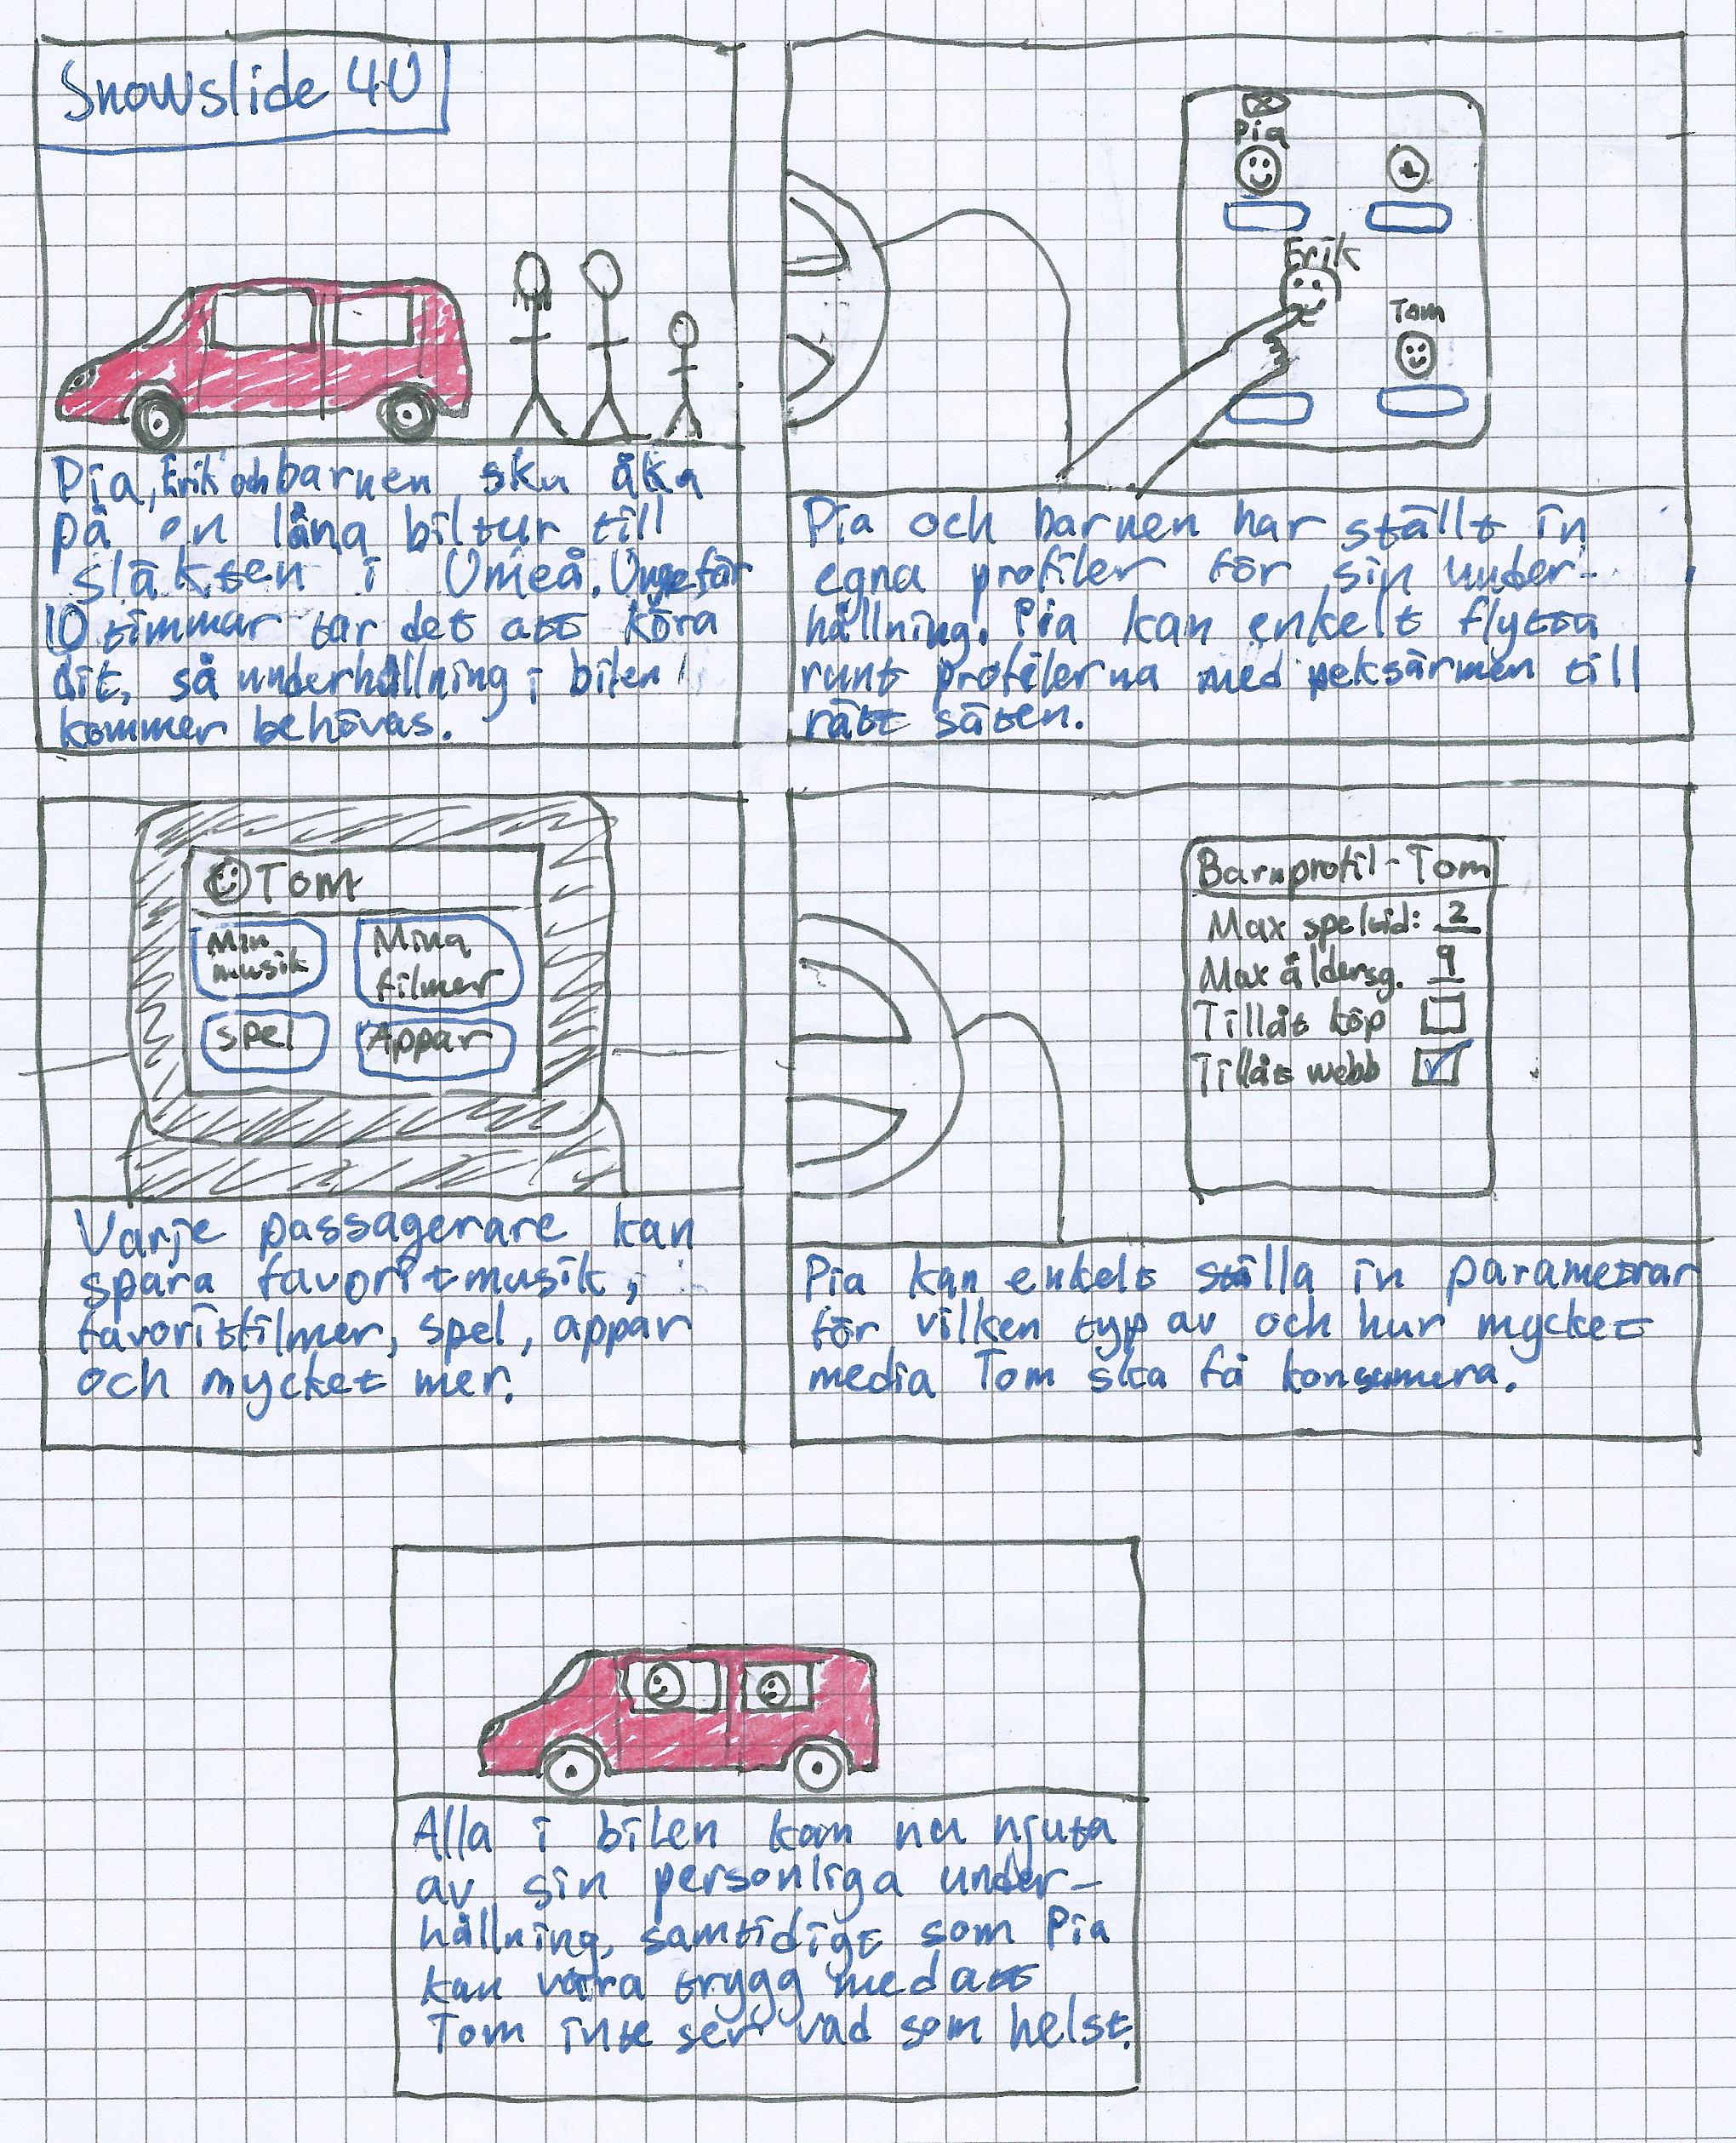 Snowslide 4U
Pia, Erik och barnen sku åka
på en lång biltur till
släkten i Umeå. Ungefär
10 timmar tar det att köra
dit, så underhållning i bilen
kommer behövas.
Pia
Erik
Tom
Pia och barnen har ställt in
egna profiler för sin under-
hållning. Pia kan enkelt flytta
runt profilerna med peksärmen till
rätt säten.
Tom
Min
musik
Mina
filmer
Spel
Appar
Varje passagerare kan
spara favoritmusik,
favoritfilmer, spel, appar
och mycket mer.
Barnprofil - Tom
Max speltid: 2
Max åldersg. 9
Tillåt köp
Tillåt webb
Pia kan enkelt ställa in parametrar
för vilken typ av och hur mycket
media Tom ska få konsumera.
Alla i bilen kan nu njuta
av sin personliga under-
hållning, samtidigt som Pia
kan vara trygg med att
Tom inte ser vad som helst.